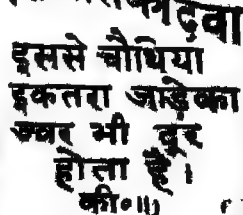 दवा
इससे चौथिया
इकतरा जाड़ेका
ज्वर भी दूर
होता है।
की०॥)